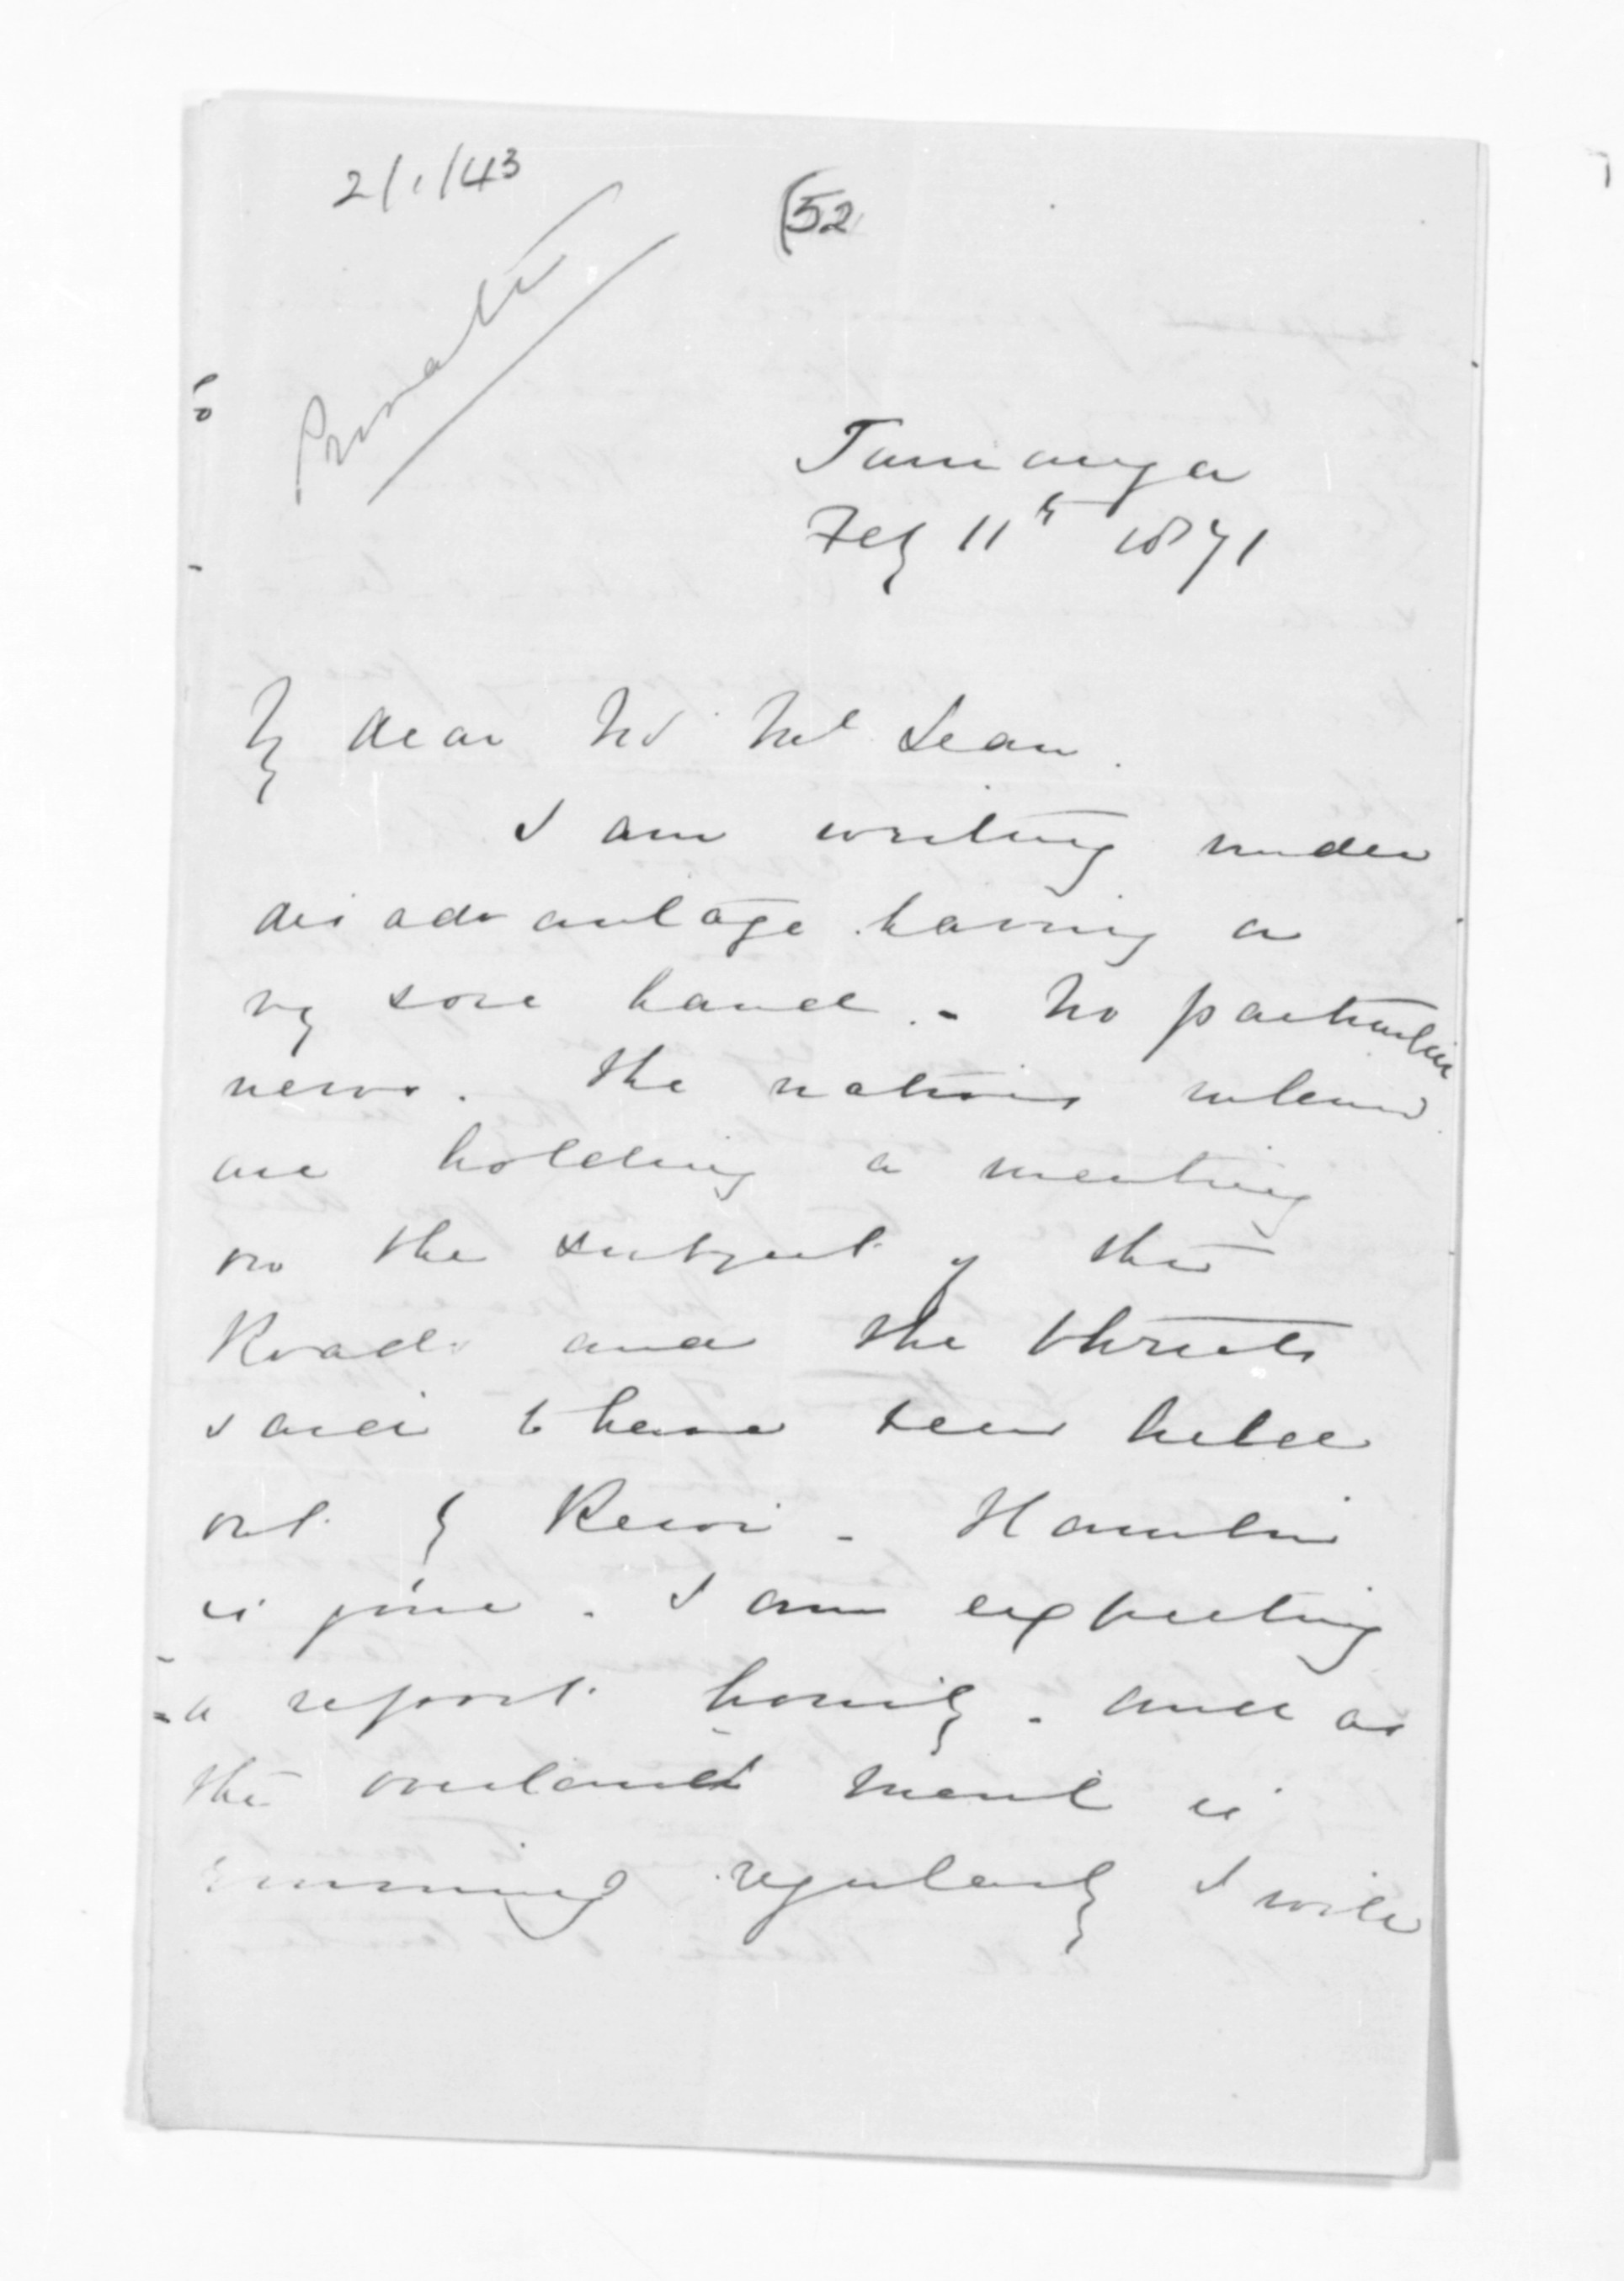 2/1/43
(52
Private
Tauranga
Feby 11th 1871
My dear Mr McLean.
I am writing under
disadvantage having a
vy sore hand. - No particular
news. The natives inland
are holding a meeting
on the subject of the
Road and the threats
said to have been held
out by Rewi - Hamlin
is gone. I am expecting
a report hourly. and as
the overland mail is
running regularly I will